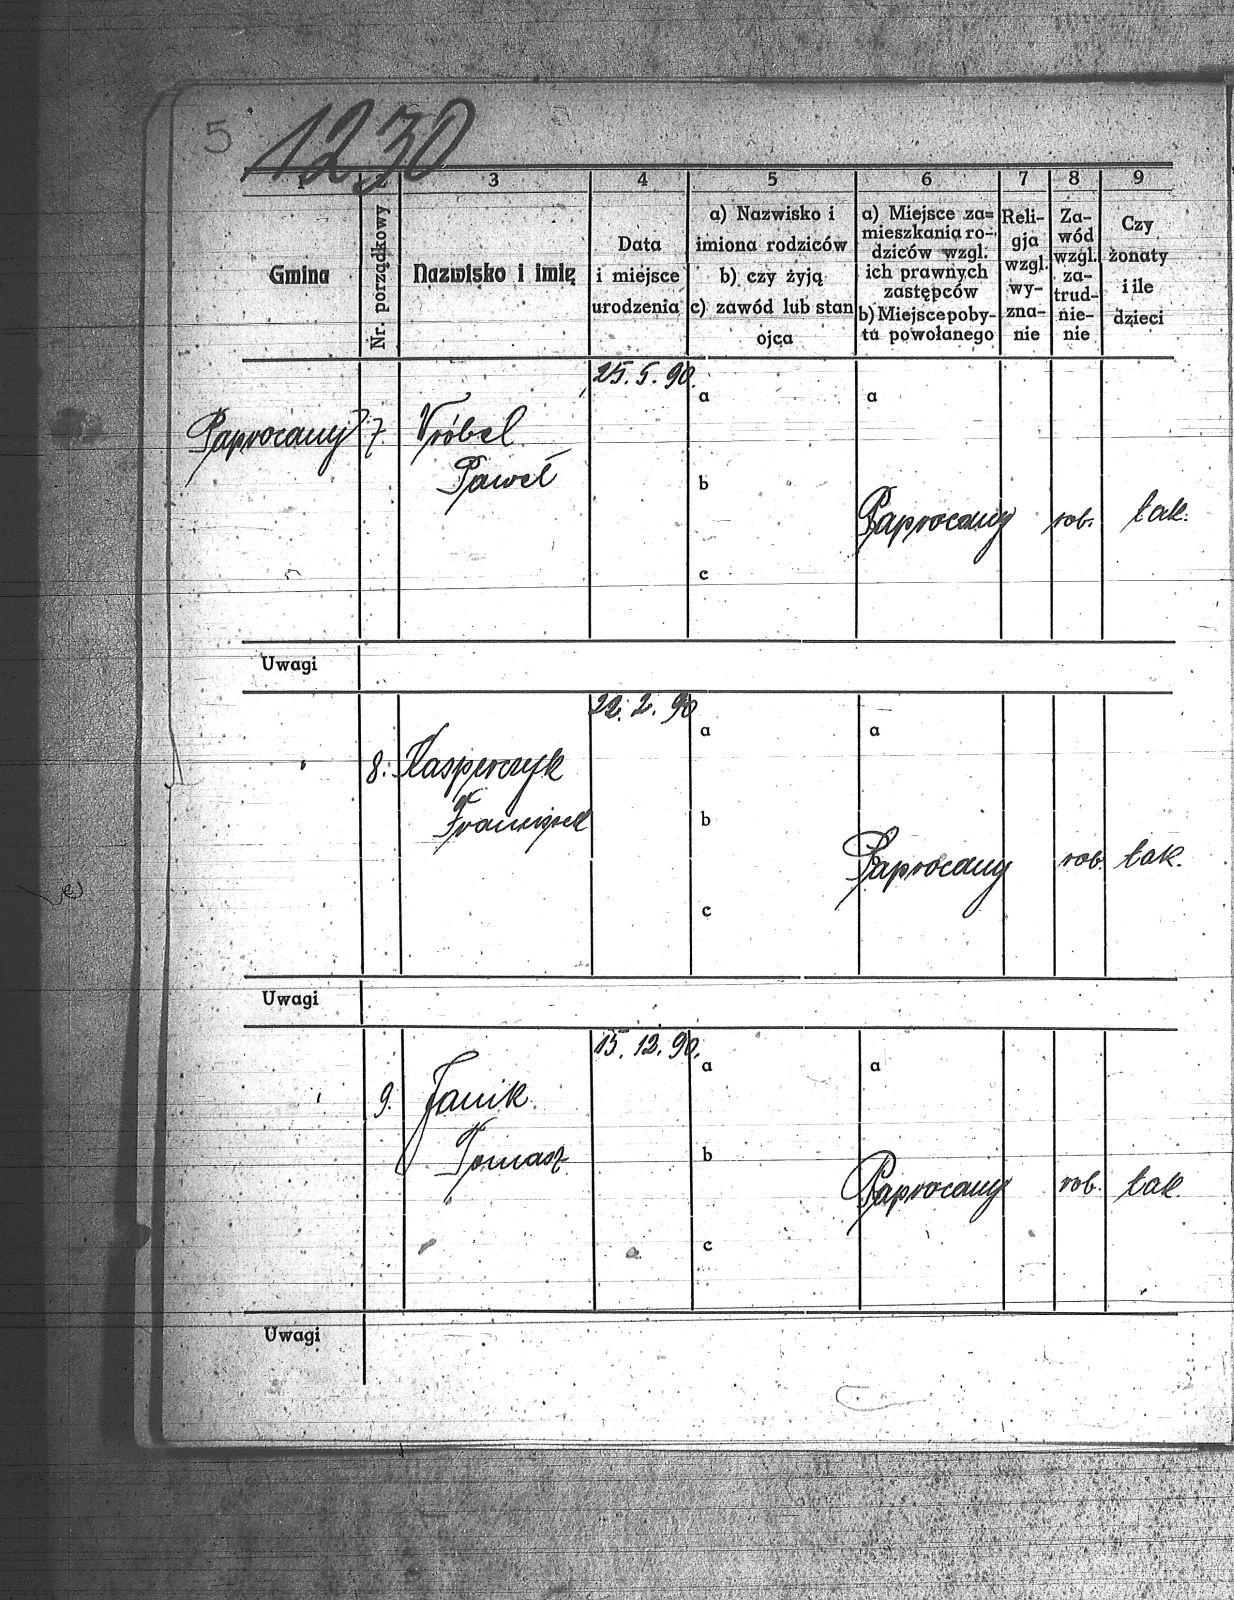 5
1230
1 2 3 4 5 6 7 8 9
Gmina
Nr. porządkowy
Nazwisko i imię
Data
i miejsce
urodzenia
a) Nazwisko i
imiona rodziców
b) czy żyją
c) zawód lub stan
ojca
a) Miejsce za=
mieszkania ro-
dziców wzgl.
ich prawnych
zastępców
b) Miejsce poby-
tu powołanego
Reli-
gja
wzgl.
wy-
zna-
nie
Za-
wód
wzgl.
za-
trud-
nie-
nie
Czy
żonaty
i ile
dzieci
25. 5. 90.
a a
Paprocany 7. Vróbel
Paweł
b
Paprocany rob. tak.
c
Uwagi
22. 2. 90
a a
8. Kasperczyk
Franciszek
b
Paprocany rob. tak.
c
Uwagi
15. 12. 90.
a a
9. Janik
Tomasz
b
Paprocany rob. tak.
c
Uwagi